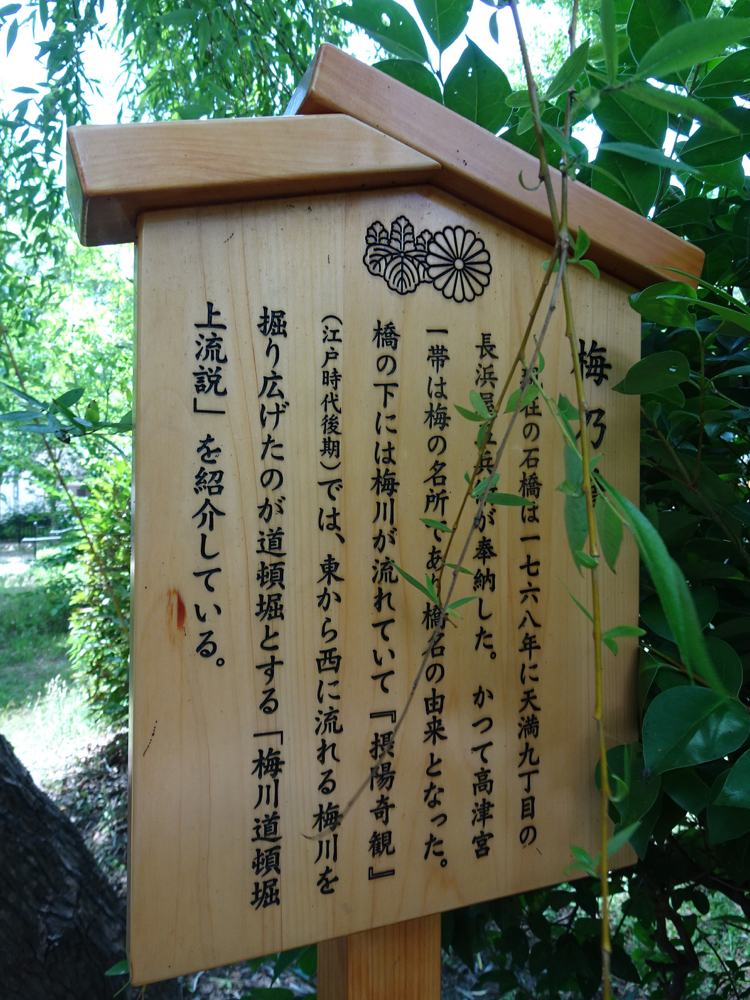 梅乃
在の石橋は一七六八年に天満九丁目の
長浜屋 兵 が奉納した。かつて高津宮
一帯は梅の名所であり橋名の由来となった。
橋の下には梅川が流れていて『摂陽奇観』
(江戸時代後期)では、東から西に流れる梅川を
掘り広げたのが道頓堀とする「梅川道頓堀
上流説」を紹介している。